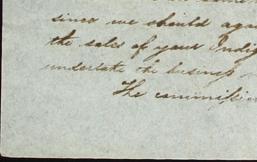 since we should
the sales of your Indig
undertake the business
The commission